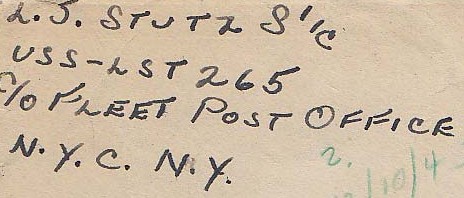 L.J. STUTZ S1/C
USS-LST 265
C/O FLEET POST OFFICE
N.Y.C. N.Y.
2.
/10/4